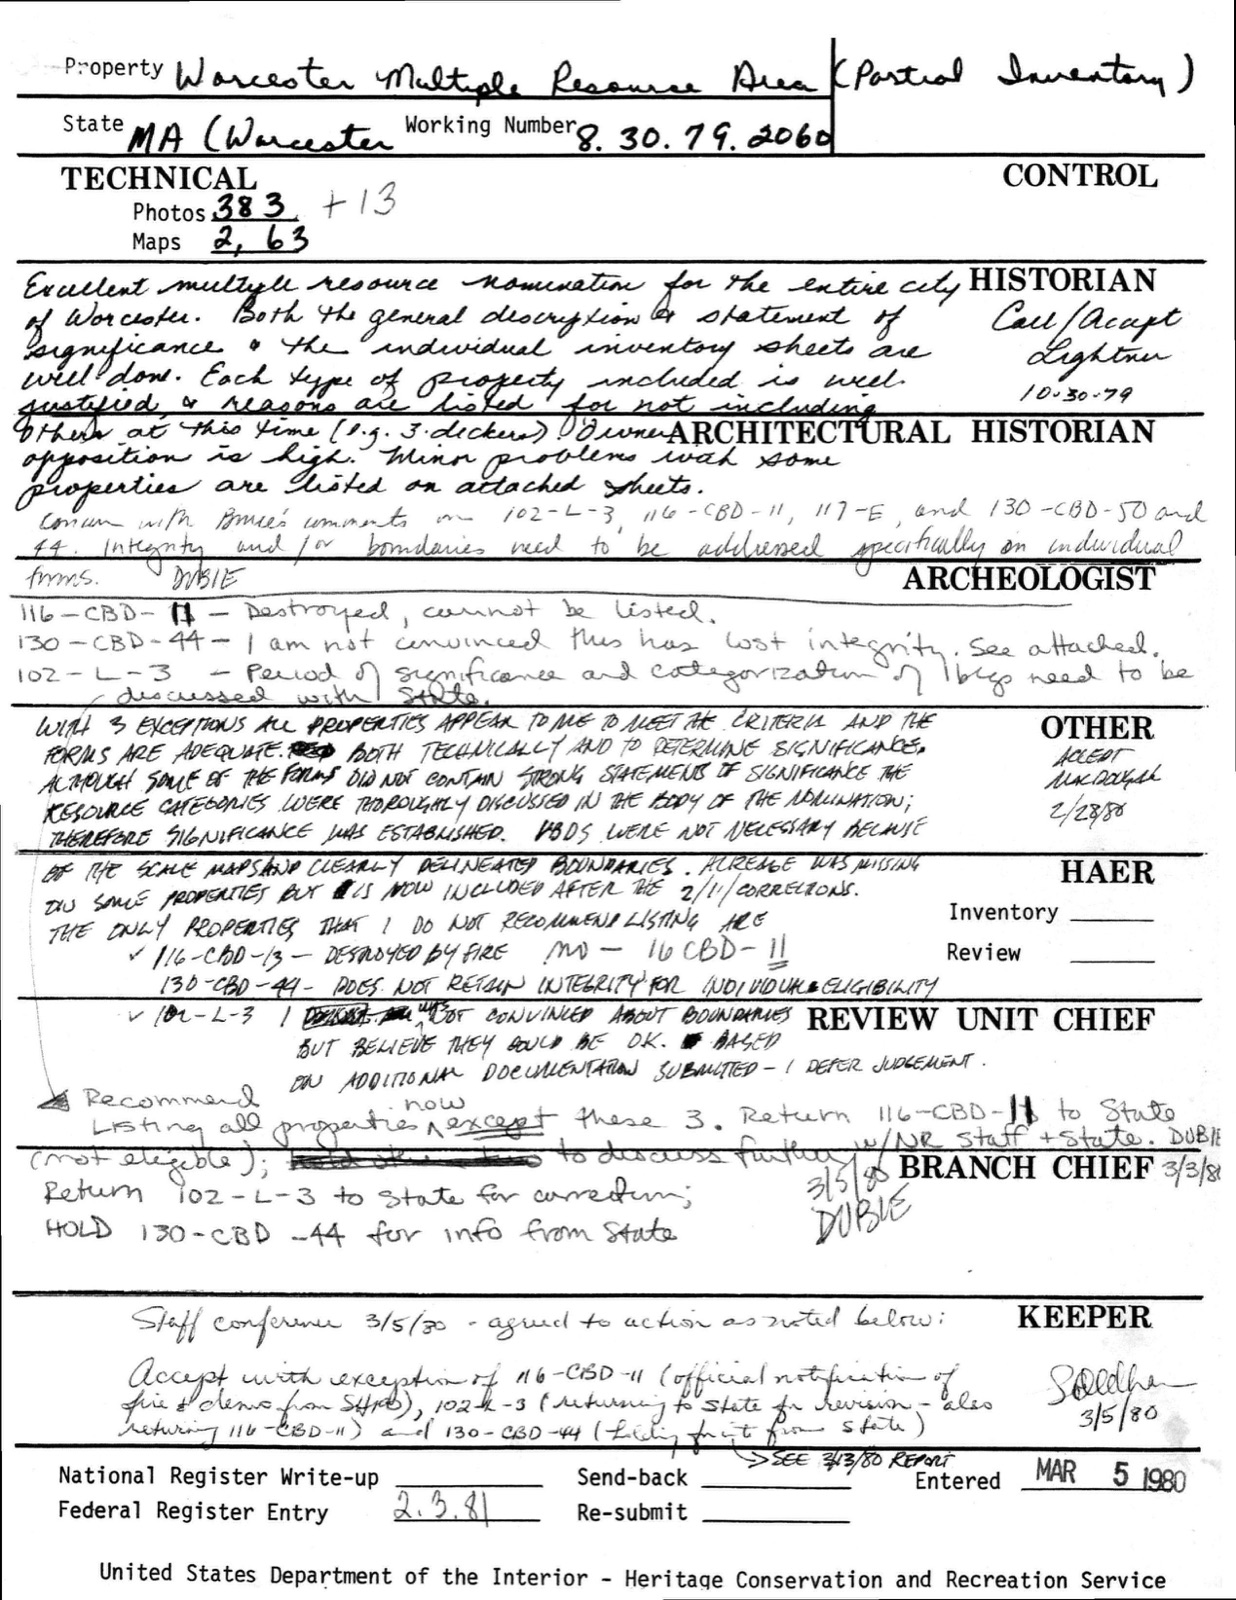 Property Worcester Multiple Resource Area (Partial Inventory)
State MA (Worcester Working Number 8.30.79.2060
TECHNICAL CONTROL
Photos 383 + 13
Maps 2, 63
Excellent multiple resource nomination for the entire city HISTORIAN
of Worcester. Both the general description & statement of Call/Accept
significance & the individual inventory sheets are Lightner
well done. Each type of property included is well 10-30-79
justified & reasons are listed for not including
others at this time (e.g. 3-deckers). Owner ARCHITECTURAL HISTORIAN
opposition is high. Minor problems with some
properties are listed on attached sheets.
Concur with Bruce's comments on 102-L-3, 116-CBD-11, 117-E, and 130-CBD-50 and
44. Integrity and/or boundaries need to be addressed specifically on individual
forms. DUBIE ARCHEOLOGIST
116-CBD-11 - Destroyed, cannot be listed.
130-CBD-44 - I am not convinced this has lost integrity. See attached.
102-L-3 - Period of significance and categorization of bldgs need to be
discussed with State.
WITH 3 EXCEPTIONS ALL PROPERTIES APPEAR TO ME TO MEET THE CRITERIA AND THE OTHER
FORMS ARE ADEQUATE BOTH TECHNICALLY AND TO DETERMINE SIGNIFICANCE. ACCEPT
ALTHOUGH SOME OF THE FORMS DID NOT CONTAIN STRONG STATEMENTS OF SIGNIFICANCE THE MACDOUGAL
RESOURCE CATEGORIES WERE THOROUGHLY DISCUSSED IN THE BODY OF THE NOMINATION; 2/28/80
THEREFORE SIGNIFICANCE WAS ESTABLISHED. VBDS WERE NOT NECESSARY BECAUSE
OF THE SCALE MAPS AND CLEARLY DELINEATED BOUNDARIES. ACREAGE WAS MISSING HAER
ON SOME PROPERTIES BUT IS NOW INCLUDED AFTER THE 2/11/CORRECTIONS.
THE ONLY PROPERTIES THAT I DO NOT RECOMMEND LISTING ARE Inventory
✓ 116-CBD-13 - DESTROYED BY FIRE NO - 116 CBD-11 Review
130-CBD-44 - DOES NOT RETAIN INTEGRITY FOR INDIVIDUAL ELIGIBILITY
✓ 102-L-3 I WAS NOT CONVINCED ABOUT BOUNDARIES REVIEW UNIT CHIEF
BUT BELIEVE THEY COULD BE OK. BASED
ON ADDITIONAL DOCUMENTATION SUBMITTED - I DEFER JUDGEMENT.
Recommend now
Listing all properties except these 3. Return 116-CBD-11 to State
(not eligible); to discuss further w/NR staff + State. DUBIE
3/5/80 BRANCH CHIEF 3/3/80
Return 102-L-3 to State for correction; DUBIE
HOLD 130-CBD-44 for info from State
Staff conference 3/5/80 - agreed to action as noted below: KEEPER
Accept with exception of 116-CBD-11 (official notification of
fire & demo from SHPO), 102-L-3 (returning to State for revision - also 3/5/80
returning 116-CBD-11) and 130-CBD-44 (holding for info from State)
→ SEE 3/13/80 REPORT
National Register Write-up Send-back Entered MAR 5 1980
Federal Register Entry 2.3.81 Re-submit
United States Department of the Interior - Heritage Conservation and Recreation Service